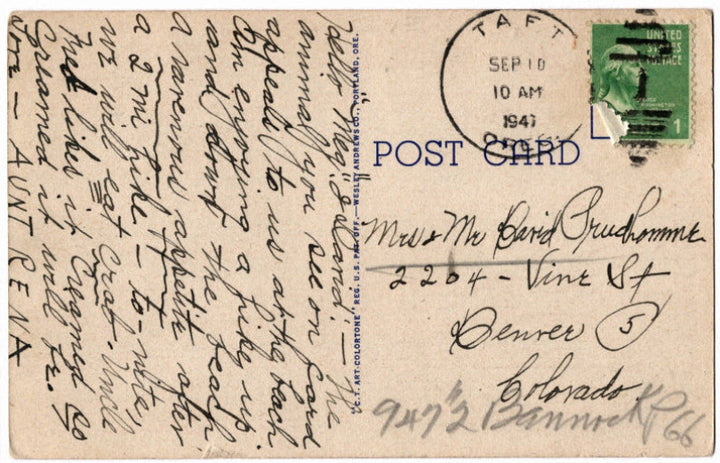 Hello "Meg" & David: — The
animal you see on card
appeals to us at the beach
Am enjoying a hike up
and down the beach
a ravenous appetite after
a 2 mi. hike — to-nite,
we will eat Crab. Uncle
Fred likes it Creamed so
Creamed it will be.
Love — AUNT RENA
"C.T. ART-COLORTONE" REG. U.S. PAT. OFF. — WESLEY ANDREWS CO., PORTLAND, ORE.
TAFT
SEP 10
10 AM
1941
OREG.
UNITED
STATES
POSTAGE
WASHINGTON
1
POST CARD
Mrs & Mr David Prudhomme
2204 - Vine St
Denver (5)
Colorado.
947 2 Bannock
66